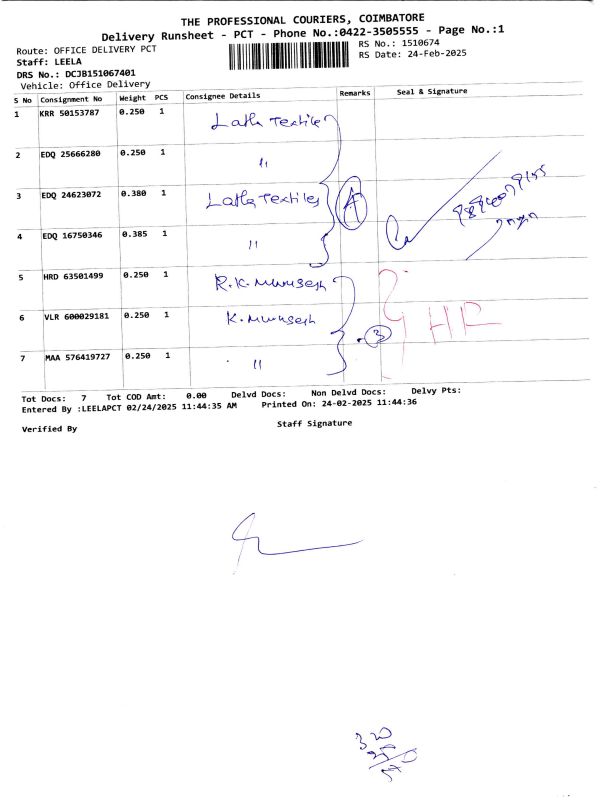 THE PROFESSIONAL COURIERS, COIMBATORE
Delivery Runsheet - PCT - Phone No.:0422-3505555 - Page No.:1
Route: OFFICE DELIVERY PCT
RS No.: 1510674
Staff: LEELA
RS Date: 24-Feb-2025
DRS No.: DCJB151067401
Vehicle: Office Delivery
S No Consignment No Weight PCS Consignee Details Remarks Seal & Signature
1 KRR 50153787 0.250 1 Latha Textiles
2 EDQ 25666280 0.250 1 "
3 EDQ 24623072 0.380 1 Latha Textiles
4 EDQ 16750346 0.385 1 "
5 HRD 63501499 0.250 1 R.K. Murugesh
6 VLR 600029181 0.250 1 K. Murugesh
3 HR
7 MAA 576419727 0.250 1 "
Tot Docs: 7 Tot COD Amt: 0.00 Delvd Docs: Non Delvd Docs: Delvy Pts:
Entered By :LEELAPCT 02/24/2025 11:44:35 AM Printed On: 24-02-2025 11:44:36
Verified By
Staff Signature